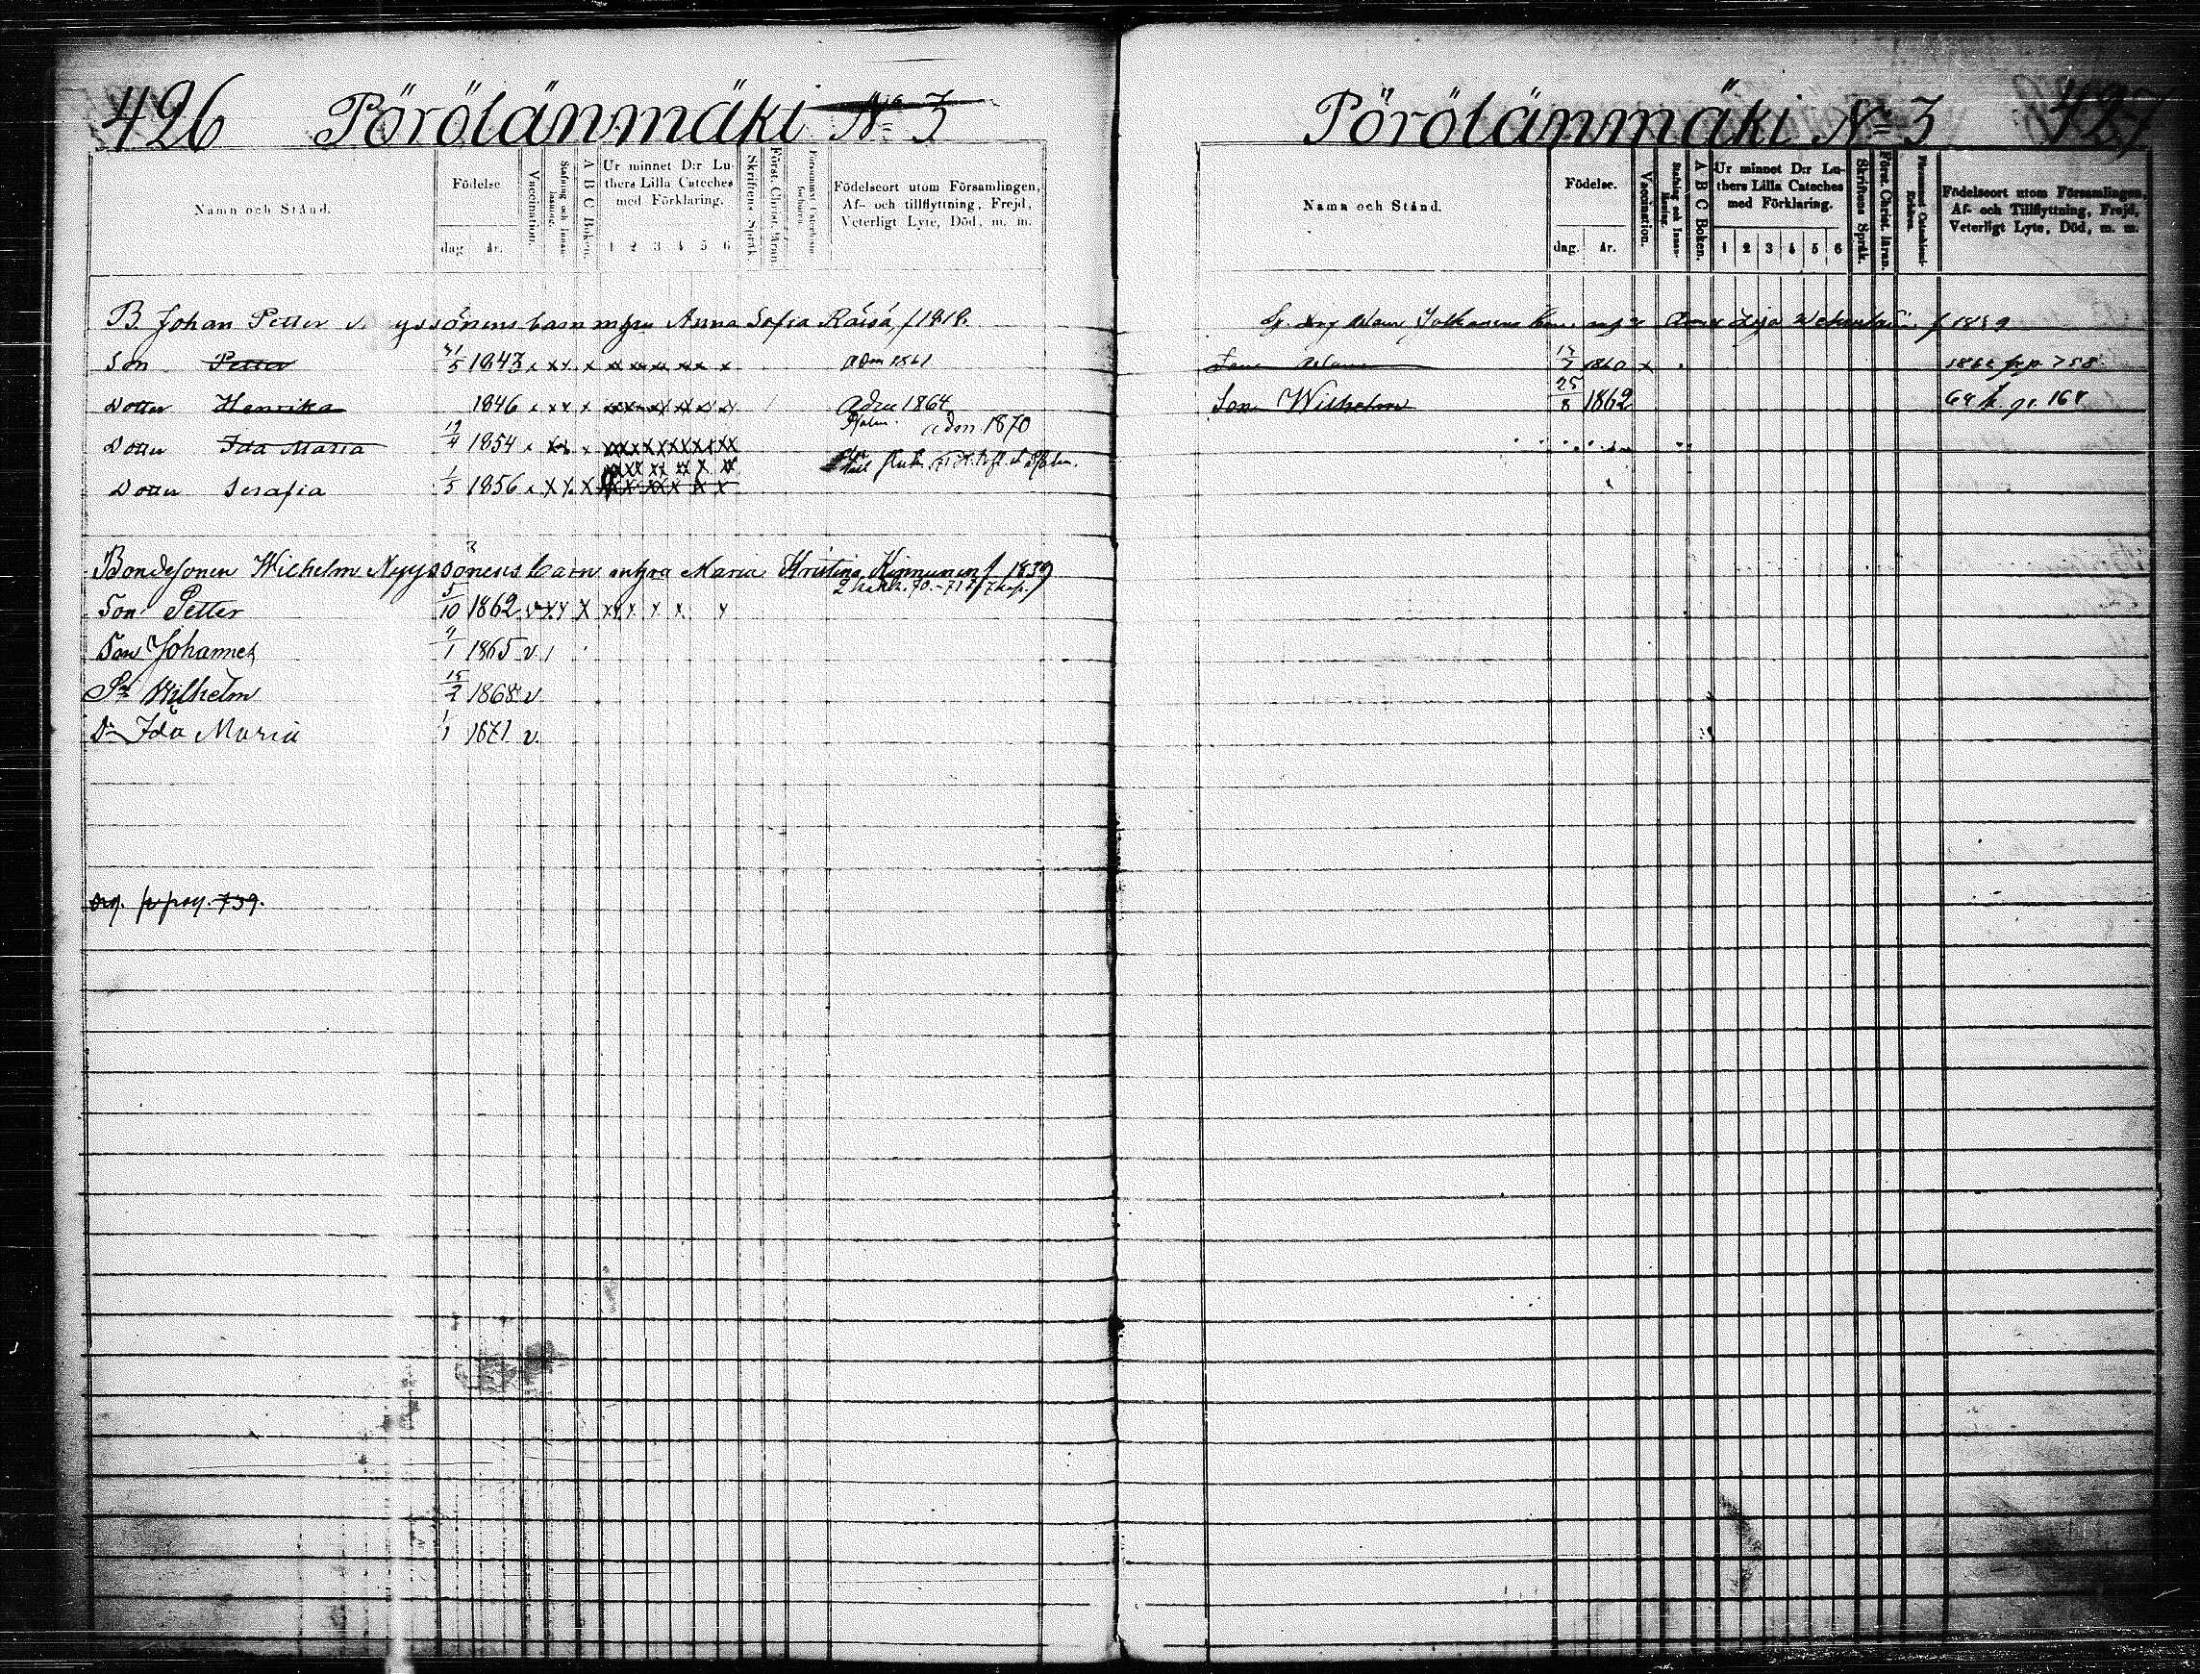 426 Pörölänmäki No 3
Namn och Stånd.
Födelse
dag. år.
Vaccination.
Stafning och Innanläsning.
A B C Boken.
Ur minnet D:r Luthers Lilla Cateches med Förklaring.
1 2 3 4 5 6
Skriftens Språk.
Först. Christ. läran.
Födelseort utom Församlingen, Af- och tillflyttning, Frejd, Veterligt Lyte, Död, m. m.
B. Johan Petter yssönens barn m Anna Sofia Räisä f 1818.
Son Petter 31/5 1843 adm 1861
Dotter Henrika 1846 adm 1864
Dotter Ida Maria 19/4 1854 adm 1870
Dotter Serafia 1/5 1856
Bondesonen Wichelm Nyyssönens barn m Maria Kristina Kinnunen f 1839
Son Petter 5/10 1862
Son Johannes 9/1 1865 v
Sn Wilhelm 15/2 1868 v
Dr Ida Maria 1/1 1871 v.
pag. 739.
Pörölänmäki No 3 427
Namn och Stånd.
Födelse.
dag. år.
Vaccination.
Stafning och Innanläsning.
A B C Boken.
Ur minnet D:r Luthers Lilla Cateches med Förklaring.
1 2 3 4 5 6
Skriftens Språk.
Först. Christ. läran.
Födelseort utom Församlingen, Af- och Tillflyttning, Frejd, Veterligt Lyte, Död, m. m.
Adam Anna Lisa f 1839
Adam 1860 x
Son Wilhelm 25/8 1862